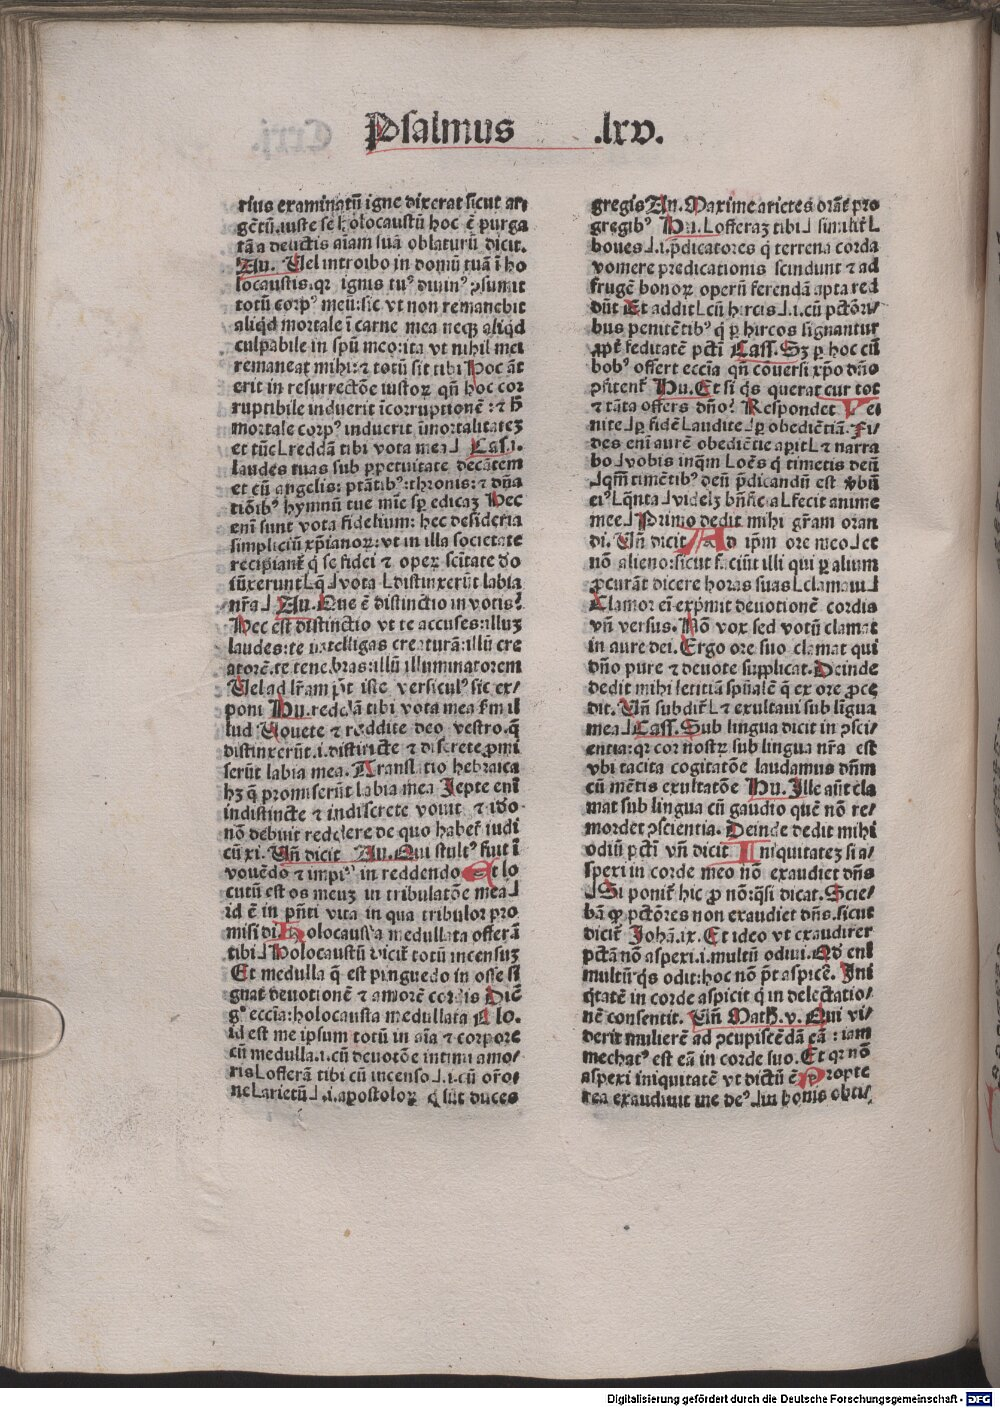 Psalmus .lxv.
rius examinatū igne dixerat sicut ar/
gētū.iuste se holocaustū hoc ē purga
tā a delictis aīam suā oblaturū dicit.
Au. Uel introibo in domū tuā ī ho
locaustis.qꝛ ignis tuꝰ diuinꝰ ꝯsumit
totū corpꝰ meū:sic vt non remanebit
aliqd mortale ī carne mea neqꝫ aliqd
culpabile in spū meo:ita vt nihil mei
remaneat mihi:⁊ totū sit tibi Hoc āt
erit in resurrectōe iustoꝝ qn̄ hoc cor
ruptibile induerit īcorruptionē:⁊ h̄
mortale corpꝰ induerit īmortalitateꝫ
et tūc⌊reddā tibi vota mea⌋ Cassi.
laudes tuas sub ꝑpetuitate decātem
et cū angelis: ptātibꝰ:thronis:⁊ dn̄a
tiōibꝰ hymnū tue mīe sp edicaꝫ Hec
enī sunt vota fidelium: hec desideria
simpliciū xp̄ianoꝝ:vt in illa societate
recipiant̄ q̄ se fidei ⁊ oper sctītate do
sūxerunt⌊q̄⌋vota⌊distinxerūt labia
nr̄a⌋ Au.Que ē distinctio in votis?
Hec est distinctio vt te accuses:illuꝫ
laudes:te intelligas creaturā:illū cre
atorē.te tenebras:illū illuminatorem
Uel ad lr̄am pōt iste versiculꝰ sic ex/
poni Hu.reddā tibi vota mea ẜm il
lud Uouete ⁊ reddite deo vestro.q̄
distinxerūt.i.distincte ⁊ discrete ꝓmi
serūt labia mea.Translatio hebraica
hꝫ q̄ promiserūt labia mea Jepte enī
indistincte ⁊ indiscrete vouit ⁊ ido
nō debuit reddere de quo habet̄ iudi
cū xi. Un̄ dicit Au.Qui stultꝰ fuit ī
vouēdo ⁊ impiꝰ in reddendo Et lo
cutū est os meuꝫ in tribulatōe mea⌋
id ē in pn̄ti vita in qua tribulor pro
misi di.Holocausta medullata offerā
tibi⌋Holocaustū dicit̄ totū incensuꝫ
Et medulla q̄ est pinguedo in osse si
gnat deuotionē ⁊ amorē cordis Dicē
gͦ eccīa:holocausta medullata Glo.
id est me ipsum totū in aīa ⁊ corpore
cū medulla.i.cū deuotōe intimi amo/
ris⌊offerā tibi cū incenso⌋.i.cū or̄o/
ne⌊arietū⌋.i.apostoloꝝ q̄ sūt duces
gregis Au.Maxime arietes orāt pro
gregibꝰ Hu.⌊offeraꝫ tibi⌋ similit̄⌊
boues⌋.i.p̄dicatores q̄ terrena corda
vomere predicationis scindunt ⁊ ad
frugē bonoꝝ operū ferendā apta red
dūt Et addit⌊cū hircis⌋.i.cū pctōri/
bus penitētibꝰ q̄ ꝑ hircos signantur
ꝓpt̄ feditatē pctī Cass.Sꝫ ꝑ hoc cū
bobꝰ offert eccīa qn̄ cōuersi xp̄o dn̄o
pn̄tent̄ Hu.Et si q̄s querat cur tot
⁊ tāta offers dn̄o? Respondet Ue
nite⌋ꝑ fidē⌊audite⌋ꝑ obediētiā.Fi/
des enī aurē obediētie aꝑit⌊⁊ narra
bo⌋vobis inqm̄⌊oēs q̄ timetis deū
⌋qm̄ timētibꝰ deū p̄dicandū est v̄bū
eiꝰ⌊q̄nta⌋videlꝫ bn̄ficia⌊fecit anime
mee⌋Primo dedit mihi gr̄am oran
di. Un̄ dicit Ad ip̄m ore meo⌋et
nō alieno:sicut faciūt illi qui ꝑ alium
ꝓcurāt dicere horas suas⌊clamaui⌋
Clamor eī exp̄mit deuotionē cordis
vn̄ versus.Nō vox sed votū clamat
in aure dei.Ergo ore suo clamat qui
dn̄o pure ⁊ deuote supplicat.Deinde
dedit mihi letitiā spūalē q̄ ex ore ꝓce
dit. Un̄ subdit̄⌊⁊ exultaui sub līgua
mea⌊Cass.Sub lingua dicit in ꝯsci/
entia:qꝛ cor nostꝝ sub lingua nr̄a est
vbi tacita cogitatōe laudamus dn̄m
cū mētis exultatōe Hu.Ille aūt cla
mat sub lingua cū gaudio quē nō re/
mordet ꝯscientia.Deinde dedit mihi
odiū pctī vn̄ dicit Iniquitateꝫ si a/
spexi in corde meo nō exaudiet dn̄s
⌋Si ponit̄ hic ꝓ nō:q̄si dicat.Scie/
bā ꝙ pctōres non exaudiet dn̄s.sicut
dicit̄ Johā.ix.Et ideo vt exaudirer
pctā nō aspexi.i.multū odiui.Qd̄ enī
multū q̄s odit:hoc nō pōt aspicē.Ini
q̄tatē in corde aspicit q̄ in delectatio/
nē consentit. Un̄ Math̄.v.Qui vi/
derit mulierē ad ꝯcupiscēdā eā:iam
mechatꝰ est eā in corde suo.Et qꝛ nō
aspexi iniquitatē vt dictū ē Propte
rea exaudiuit me deꝰ⌋in bonis obti/
Digitalisierung gefördert durch die Deutsche Forschungsgemeinschaft - DFG